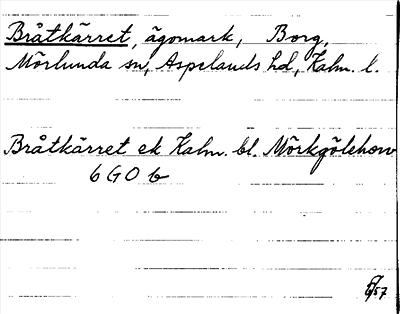 Bråtkärret, ägomark, Borg,
Mörlunda sn, Aspelands hd, Kalm. l.
Bråtkärret ek Kalm. bl. Mörkgölehow
6 G 0 b